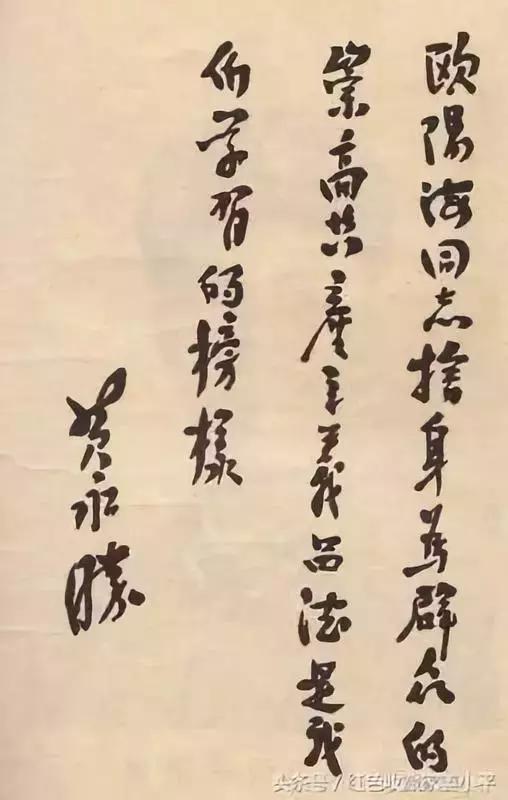 欧陽海同志捨身为群众的
崇高共產主義品德是我
们学習的榜樣
黄永勝
头条号/红色收
小平